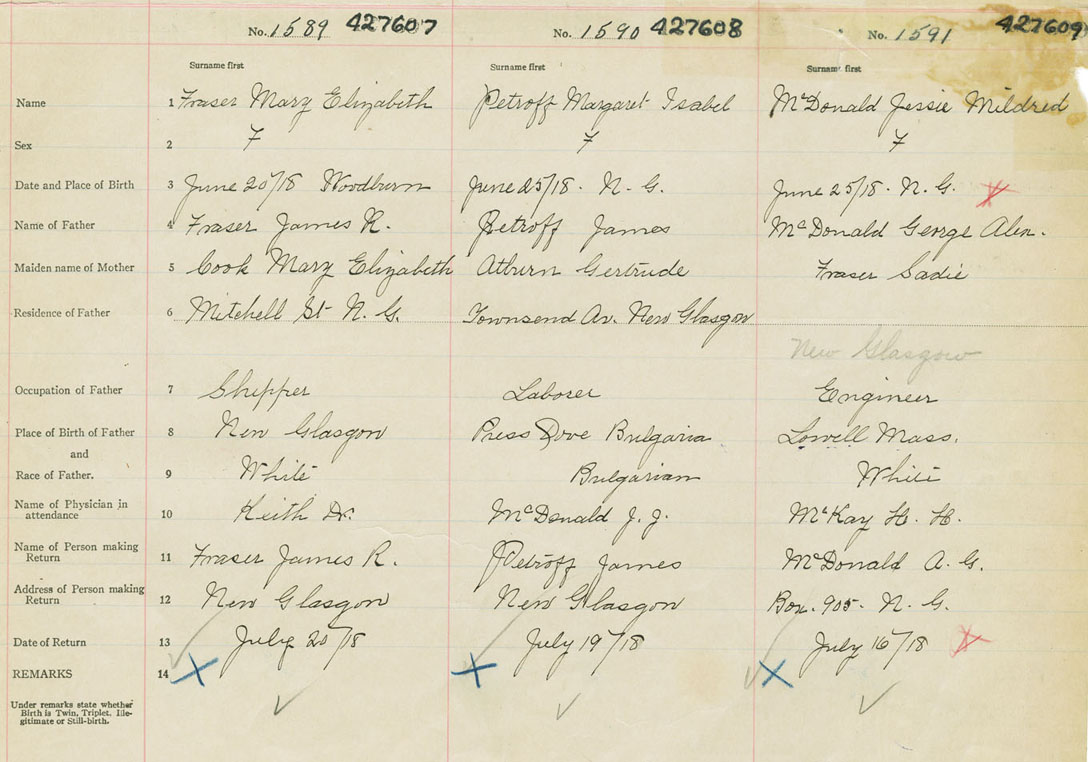 No. 1589 427607 No. 1590 427608 No. 1591 427609
Surname first Surname first Surname first
Name 1 Fraser Mary Elizabeth Petroff Margaret Isabel McDonald Jessie Mildred
Sex 2 F F F
Date and Place of Birth 3 June 20/18 Woodburn June 25/18. N. G. June 25/18. N. G. X
Name of Father 4 Fraser James R. Petroff James McDonald George Alex.
Maiden name of Mother 5 Cook Mary Elizabeth Atburn Gertrude Fraser Sadie
Residence of Father 6 Mitchell St N. G. Townsend Av. New Glasgow
New Glasgow
Occupation of Father 7 Laborer Engineer
Place of Birth of Father 8 New Glasgow Press Dove Bulgaria Lowell Mass.
and
Race of Father. 9 White Bulgarian White
Name of Physician in
attendance 10 Keith Dr. McDonald J. J. McKay H. H.
Name of Person making
Return 11 Fraser James R. Petroff James McDonald A. G.
Address of Person making
Return 12 New Glasgow New Glasgow Box. 905. N. G.
Date of Return 13 July 20/18 July 19/18 July 16/18 X
REMARKS 14 X X X
Under remarks state whether
Birth is Twin, Triplet, Ille-
gitimate or Still-birth.